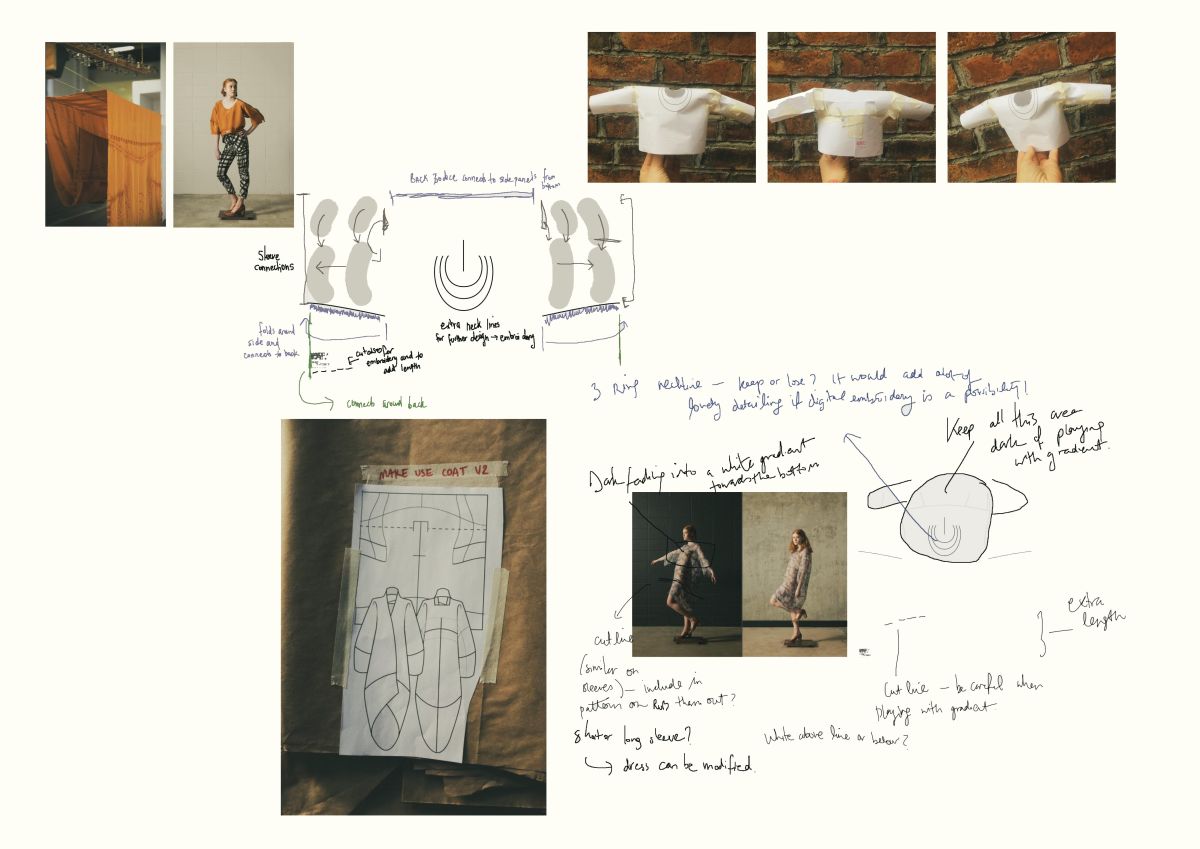 Back Bodice connects to side panels from
bottom
Sleeve
connections
extra neck lines
for further design → embroidery
folds around
side and
connects to back
cut also for
embroidery and to
add length
connects around back
3 Ring neckline – keep or lose? It would add alot of
lovely detailing if digital embroidery is a possibility!
Keep all this area
dark if playing
with gradient.
Dark fading into a white gradient
towards the bottom
MAKE USE COAT V2
cut line
(similar on
sleeves) – include in
pattern or Rub them out?
extra
length
Cut line – be careful when
playing with gradient
White above line or below?
Short or long sleeve?
dress can be modified.